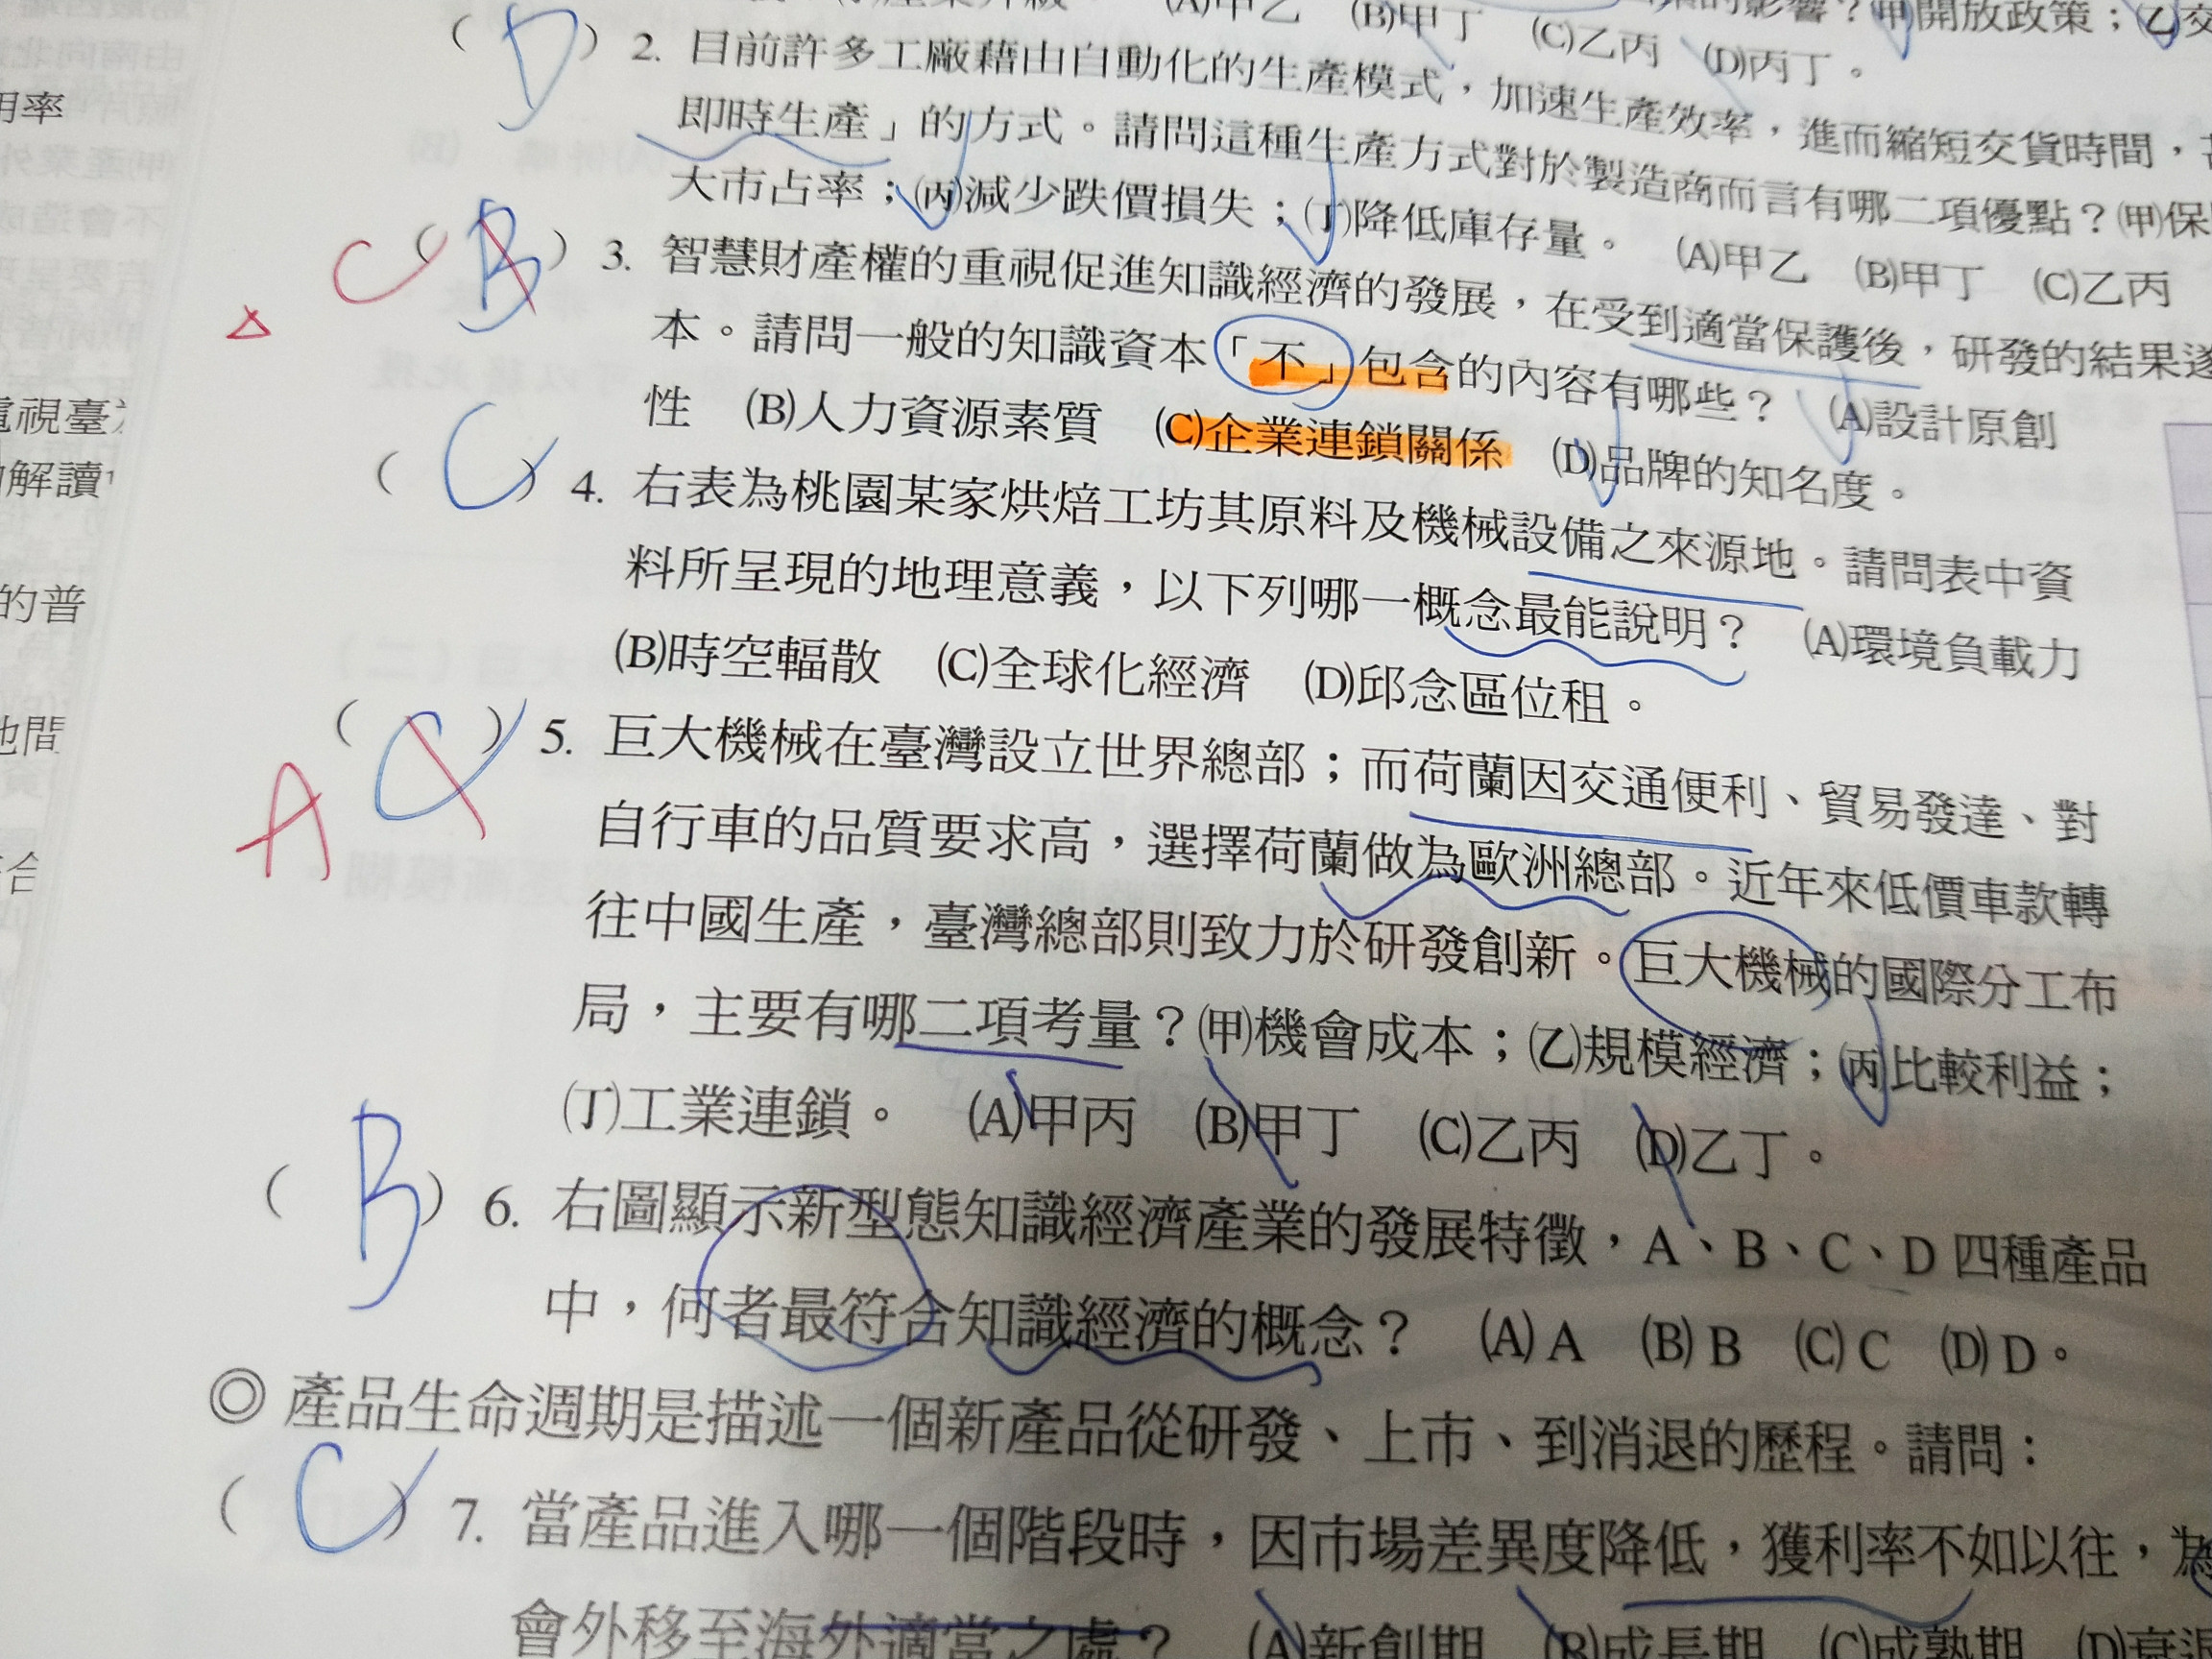 的影響？㈙開放政策；㈚交
(A)甲乙 (B)甲丁 (C)乙丙 (D)丙丁。
( D ) 2. 目前許多工廠藉由自動化的生產模式，加速生產效率，進而縮短交貨時間，
即時生產」的方式。請問這種生產方式對於製造商而言有哪二項優點？(甲)保
大市占率；(丙)減少跌價損失；(丁)降低庫存量。 (A)甲乙 (B)甲丁 (C)乙丙
C ( B ) 3. 智慧財產權的重視促進知識經濟的發展，在受到適當保護後，研發的結果遂
本。請問一般的知識資本「不」包含的內容有哪些？ (A)設計原創
性 (B)人力資源素質 (C)企業連鎖關係 (D)品牌的知名度。
( C ) 4. 右表為桃園某家烘焙工坊其原料及機械設備之來源地。請問表中資
料所呈現的地理意義，以下列哪一概念最能說明？ (A)環境負載力
(B)時空輻散 (C)全球化經濟 (D)邱念區位租。
A ( C ) 5. 巨大機械在臺灣設立世界總部；而荷蘭因交通便利、貿易發達、對
自行車的品質要求高，選擇荷蘭做為歐洲總部。近年來低價車款轉
往中國生產，臺灣總部則致力於研發創新。巨大機械的國際分工布
局，主要有哪二項考量？(甲)機會成本；(乙)規模經濟；(丙)比較利益；
(丁)工業連鎖。 (A)甲丙 (B)甲丁 (C)乙丙 (D)乙丁。
( B ) 6. 右圖顯示新型態知識經濟產業的發展特徵，A、B、C、D 四種產品
中，何者最符合知識經濟的概念？ (A) A (B) B (C) C (D) D。
◎ 產品生命週期是描述一個新產品從研發、上市、到消退的歷程。請問：
( C ) 7. 當產品進入哪一個階段時，因市場差異度降低，獲利率不如以往，為
會外移至海外適當之處？ (A)新創期 (B)成長期 (C)成熟期 (D)衰退
用率
電視臺
解讀
的普
地間
合